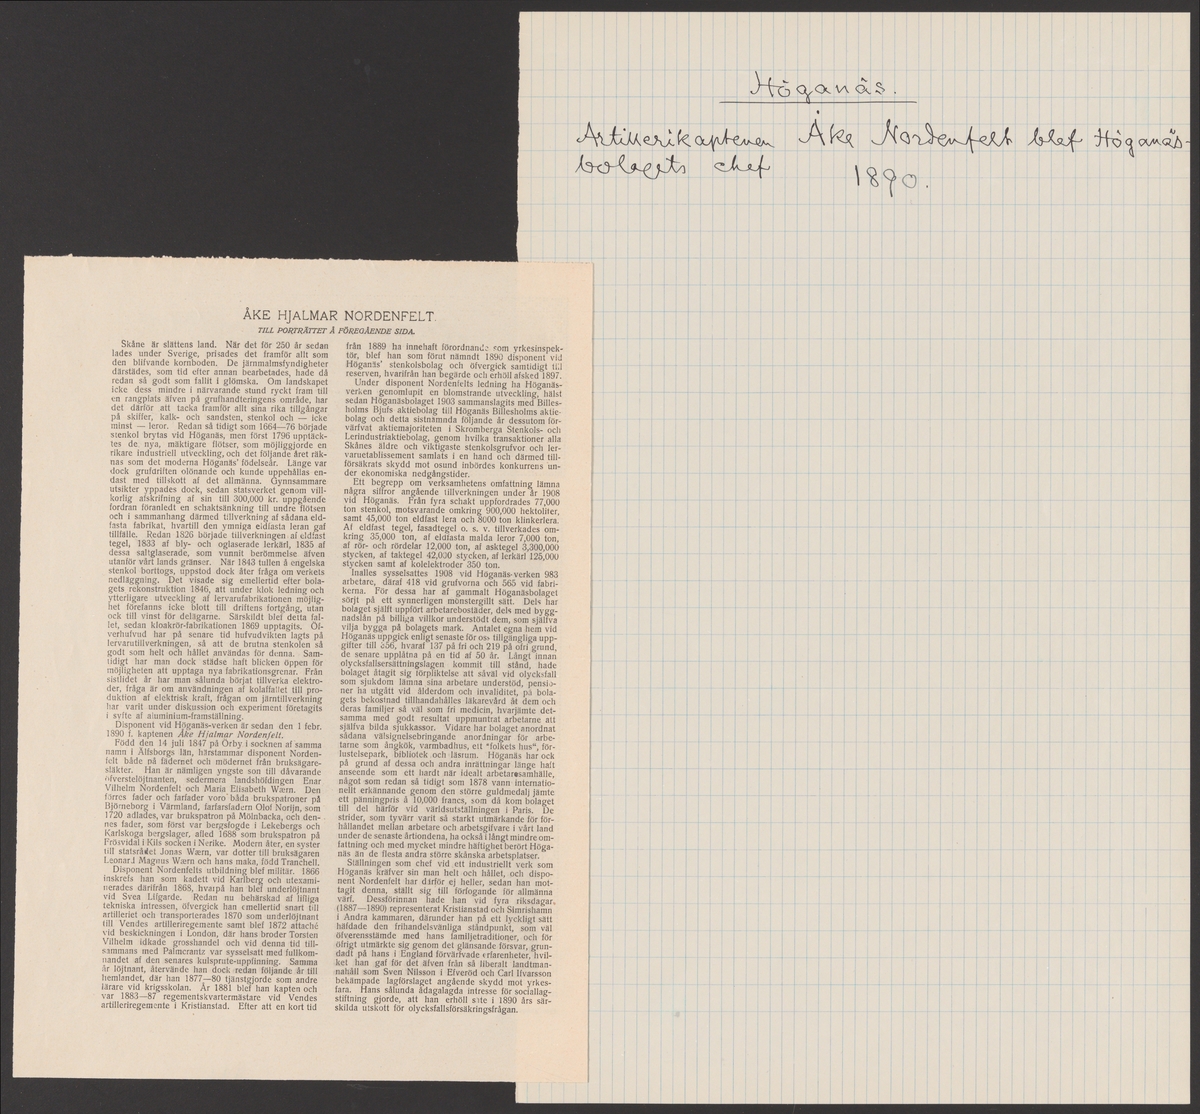 Höganäs.
Artillerikaptenen Åke Nordenfelt blef Höganäs-
bolagets chef 1890.
ÅKE HJALMAR NORDENFELT.
TILL PORTRÄTTET Å FÖREGÅENDE SIDA.
Skåne är slättens land. När det för 250 år sedan
lades under Sverige, prisades det framför allt som
den blifvande kornboden. De järnmalmsfyndigheter
därstädes, som tid efter annan bearbetades, hade då
redan så godt som fallit i glömska. Om landskapet
icke dess mindre i närvarande stund ryckt fram till
en rangplats äfven på grufhandteringens område, har
det därför att tacka framför allt sina rika tillgångar
på skiffer, kalk- och sandsten, stenkol och — icke
minst — leror. Redan så tidigt som 1664—76 började
stenkol brytas vid Höganäs, men först 1796 upptäck-
tes de nya, mäktigare flötser, som möjliggjorde en
rikare industriell utveckling, och det följande året räk-
nas som det moderna Höganäs' födelseår. Länge var
dock grufdriften olönande och kunde uppehållas en-
dast med tillskott af det allmänna. Gynnsammare
utsikter yppades dock, sedan statsverket genom vill-
korlig afskrifning af sin till 300,000 kr. uppgående
fordran föranledt en schaktsänkning till undre flötsen
och i sammanhang därmed tillverkning af sådana eld-
fasta fabrikat, hvartill den ymniga eldfasta leran gaf
tillfälle. Redan 1826 började tillverkningen af eldfast
tegel, 1833 af bly- och oglaserade lerkärl, 1835 af
dessa saltglaserade, som vunnit berömmelse äfven
utanför vårt lands gränser. När 1843 tullen å engelska
stenkol borttogs, uppstod dock åter fråga om verkets
nedläggning. Det visade sig emellertid efter bola-
gets rekonstruktion 1846, att under klok ledning och
ytterligare utveckling af lervarufabrikationen möjlig-
het förefanns icke blott till driftens fortgång, utan
ock till vinst för delägarne. Särskildt blef detta fal-
let, sedan kloakrör-fabrikationen 1869 upptagits. Öf-
verhufvud har på senare tid hufvudvikten lagts på
lervarutillverkningen, så att de brutna stenkolen så
godt som helt och hållet användas för denna. Sam-
tidigt har man dock städse haft blicken öppen för
möjligheten att upptaga nya fabrikationsgrenar. Från
sistlidet år har man sålunda börjat tillverka elektro-
der, fråga är om användningen af kolaffallet till pro-
duktion af elektrisk kraft, frågan om järntillverkning
har varit under diskussion och experiment företagits
i syfte af aluminium-framställning.
Disponent vid Höganäs-verken är sedan den 1 febr.
1890 f. kaptenen Åke Hjalmar Nordenfelt.
Född den 14 juli 1847 på Örby i socknen af samma
namn i Älfsborgs län, härstammar disponent Norden-
felt både på fädernet och mödernet från bruksägare-
släkter. Han är nämligen yngste son till dåvarande
öfverstelöjtnanten, sedermera landshöfdingen Enar
Vilhelm Nordenfelt och Maria Elisabeth Wærn. Den
förres fader och farfader voro båda brukspatroner på
Björneborg i Värmland, farfarsfadern Olof Norijn, som
1720 adlades, var brukspatron på Mölnbacka, och den-
nes fader, som först var bergsfogde i Lekebergs och
Karlskoga bergslager, afled 1688 som brukspatron på
Frösvidal i Kils socken i Nerike. Modern åter, en syster
till statsrådet Jonas Wærn, var dotter till bruksägaren
Leonard Magnus Wærn och hans maka, född Tranchell.
Disponent Nordenfelts utbildning blef militär. 1866
inskrefs han som kadett vid Karlberg och utexami-
nerades därifrån 1868, hvarpå han blef underlöjtnant
vid Svea Lifgarde. Redan nu behärskad af lifliga
tekniska intressen, öfvergick han emellertid snart till
artilleriet och transporterades 1870 som underlöjtnant
till Vendes artilleriregemente samt blef 1872 attaché
vid beskickningen i London, där hans broder Torsten
Vilhelm idkade grosshandel och vid denna tid till-
sammans med Palmcrantz var sysselsatt med fullkom-
nandet af den senares kulsprute-uppfinning. Samma
år löjtnant, återvände han dock redan följande år till
hemlandet, där han 1877—80 tjänstgjorde som andre
lärare vid krigsskolan. År 1881 blef han kapten och
var 1883—87 regementskvartermästare vid Vendes
artilleriregemente i Kristianstad. Efter att en kort tid
från 1889 ha innehaft förordnande som yrkesinspek-
tör, blef han som förut nämndt 1890 disponent vid
Höganäs' stenkolsbolag och öfvergick samtidigt till
reserven, hvarifrån han begärde och erhöll afsked 1897.
Under disponent Nordenfelts ledning ha Höganäs-
verken genomlupit en blomstrande utveckling, hälst
sedan Höganäsbolaget 1903 sammanslagits med Billes-
holms Bjufs aktiebolag till Höganäs Billesholms aktie-
bolag och detta sistnämnda följande år dessutom för-
värfvat aktiemajoriteten i Skromberga Stenkols- och
Lerindustriaktiebolag, genom hvilka transaktioner alla
Skånes äldre och viktigaste stenkolsgrufvor och ler-
varuetablissement samlats i en hand och därmed till-
försäkrats skydd mot osund inbördes konkurrens un-
der ekonomiska nedgångstider.
Ett begrepp om verksamhetens omfattning lämna
några siffror angående tillverkningen under år 1908
vid Höganäs. Från fyra schakt uppfordrades 77,000
ton stenkol, motsvarande omkring 900,000 hektoliter,
samt 45,000 ton eldfast lera och 8000 ton klinkerlera.
Af eldfast tegel, fasadtegel o. s. v. tillverkades om-
kring 35,000 ton, af eldfasta malda leror 7,000 ton,
af rör- och rördelar 12,000 ton, af asktegel 3,300,000
stycken, af taktegel 42,000 stycken, af lerkärl 125,000
stycken samt af kolelektroder 350 ton.
Inalles sysselsattes 1908 vid Höganäs-verken 983
arbetare, däraf 418 vid grufvorna och 565 vid fabri-
kerna. För dessa har af gammalt Höganäsbolaget
sörjt på ett synnerligen mönstergillt sätt. Dels har
bolaget själft uppfört arbetarebostäder, dels med bygg-
nadslån på billiga villkor understödt dem, som själfva
vilja bygga på bolagets mark. Antalet egna hem vid
Höganäs uppgick enligt senaste för oss tillgängliga upp-
gifter till 356, hvaraf 137 på fri och 219 på ofri grund,
de senare upplåtna på en tid af 50 år. Långt innan
olycksfallsersättningslagen kommit till stånd, hade
bolaget åtagit sig förpliktelse att såväl vid olycksfall
som sjukdom lämna sina arbetare understöd, pensio-
ner ha utgått vid ålderdom och invaliditet, på bola-
gets bekostnad tillhandahålles läkarevård åt dem och
deras familjer så väl som fri medicin, hvarjämte det-
samma med godt resultat uppmuntrat arbetarne att
själfva bilda sjukkassor. Vidare har bolaget anordnat
sådana välsignelsebringande anordningar för arbe-
tarne som ångkök, varmbadhus, ett "folkets hus", för-
lustelsepark, bibliotek och läsrum. Höganäs har ock
på grund af dessa och andra inrättningar länge haft
anseende som ett hardt när idealt arbetaresamhälle,
något som redan så tidigt som 1878 vann internatio-
nellt erkännande genom den större guldmedalj jämte
ett pänningpris å 10,000 francs, som då kom bolaget
till del härför vid världsutställningen i Paris. De
strider, som tyvärr varit så starkt utmärkande för för-
hållandet mellan arbetare och arbetsgifvare i vårt land
under de senaste årtiondena, ha också i långt mindre om-
fattning och med mycket mindre häftighet berört Höga-
näs än de flesta andra större skånska arbetsplatser.
Ställningen som chef vid ett industriellt verk som
Höganäs kräfver sin man helt och hållet, och dispo-
nent Nordenfelt har därför ej heller, sedan han mot-
tagit denna, ställt sig till förfogande för allmänna
värf. Dessförinnan hade han vid fyra riksdagar.
(1887—1890) representerat Kristianstad och Simrishamn
i Andra kammaren, därunder han på ett lyckligt sätt
häfdade den frihandelsvänliga ståndpunkt, som väl
öfverensstämde med hans familjetraditioner, och för
öfrigt utmärkte sig genom det glänsande försvar, grun-
dadt på hans i England förvärfvade erfarenheter, hvil-
ket han gaf för det äfven från så liberalt landtman-
nahåll som Sven Nilsson i Efveröd och Carl Ifvarsson
bekämpade lagförslaget angående skydd mot yrkes-
fara. Hans sålunda ådagalagda intresse för sociallag-
stiftning gjorde, att han erhöll säte i 1890 års sär-
skilda utskott för olycksfallsförsäkringsfrågan.